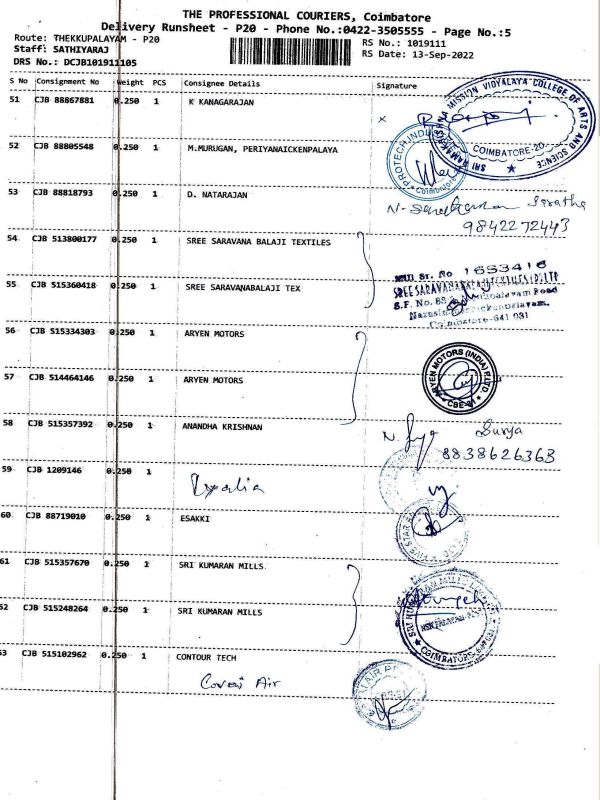 THE PROFESSIONAL COURIERS, Coimbatore
Delivery Runsheet - P20 - Phone No.:0422-3505555 - Page No.:5
Route: THEKKUPALAYAM - P20
RS No.: 1019111
Staff: SATHIYARAJ
RS Date: 13-Sep-2022
DRS No.: DCJB101911105
S No Consignment No Weight PCS Consignee Details Signature
51 CJB 88867881 0.250 1 K KANAGARAJAN
SRI RAMAKRISHNA MISSION VIDYALAYA COLLEGE OF ARTS AND SCIENCE
COIMBATORE-20
52 CJB 88805548 0.250 1 M.MURUGAN, PERIYANAICKENPALAYA
53 CJB 88818793 0.250 1 D. NATARAJAN
9842272443
54 CJB 513800177 0.250 1 SREE SARAVANA BALAJI TEXTILES
1653416
55 CJB 515360418 0.250 1 SREE SARAVANABALAJI TEX
S.F. No. 88
Coimbatore-641 031
56 CJB 515334303 0.250 1 ARYEN MOTORS
57 CJB 514464146 0.250 1 ARYEN MOTORS
ARYEN MOTORS (INDIA) P LTD
58 CJB 515357392 0.250 1 ANANDHA KRISHNAN
Surya
8838626363
59 CJB 1209146 0.250 1
60 CJB 88719010 0.250 1 ESAKKI
61 CJB 515357670 0.250 1 SRI KUMARAN MILLS
62 CJB 515248264 0.250 1 SRI KUMARAN MILLS
63 CJB 515102962 0.250 1 CONTOUR TECH
Air